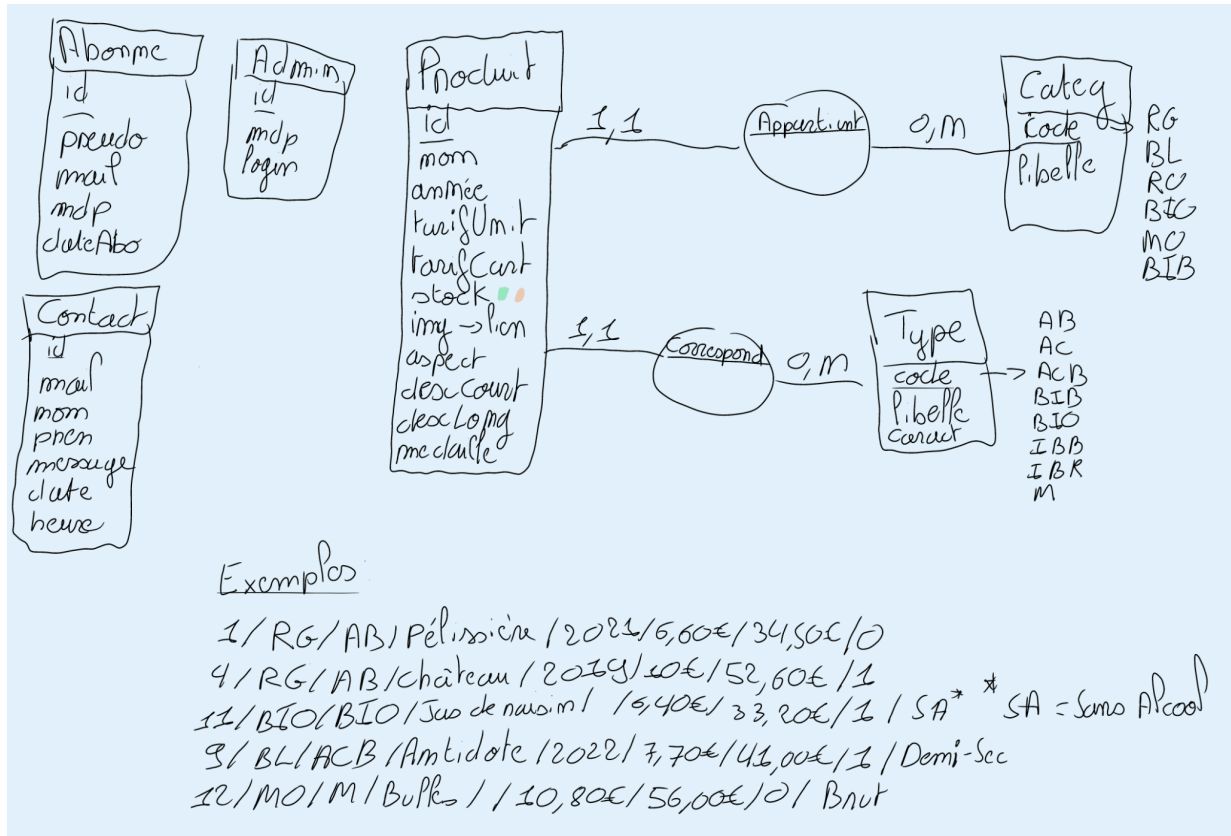 Abonne
id
pseudo
mail
mdp
dateAbo
Admin
id
mdp
login
Contact
id
mail
nom
pren
message
date
heure
Produit
id
nom
année
tarifUnit
tarifCart
stock
img → lien
aspect
descCourt
descLong
medaille
1,1
Appartient
0,M
Categ
code →
libelle
RG
BL
RO
BIO
MO
BIB
1,1
Correspond
0,M
Type
code →
libelle
caract
AB
AC
ACB
BIB
BIO
IBB
IBR
M
Exemples
1/ RG/ AB/ Pélissière /2021/6,60€/34,50€/0
4/ RG/ AB/ château /2019/10€/52,60€/1
11/BIO/BIO/Jus de raisin/ /6,40€/33,20€/1/ SA* * SA = Sans Alcool
9/ BL/ACB/Antidote/2022/7,70€/41,00€/1/Demi-Sec
12/MO/M/Bulles/ /10,80€/56,00€/0/ Brut